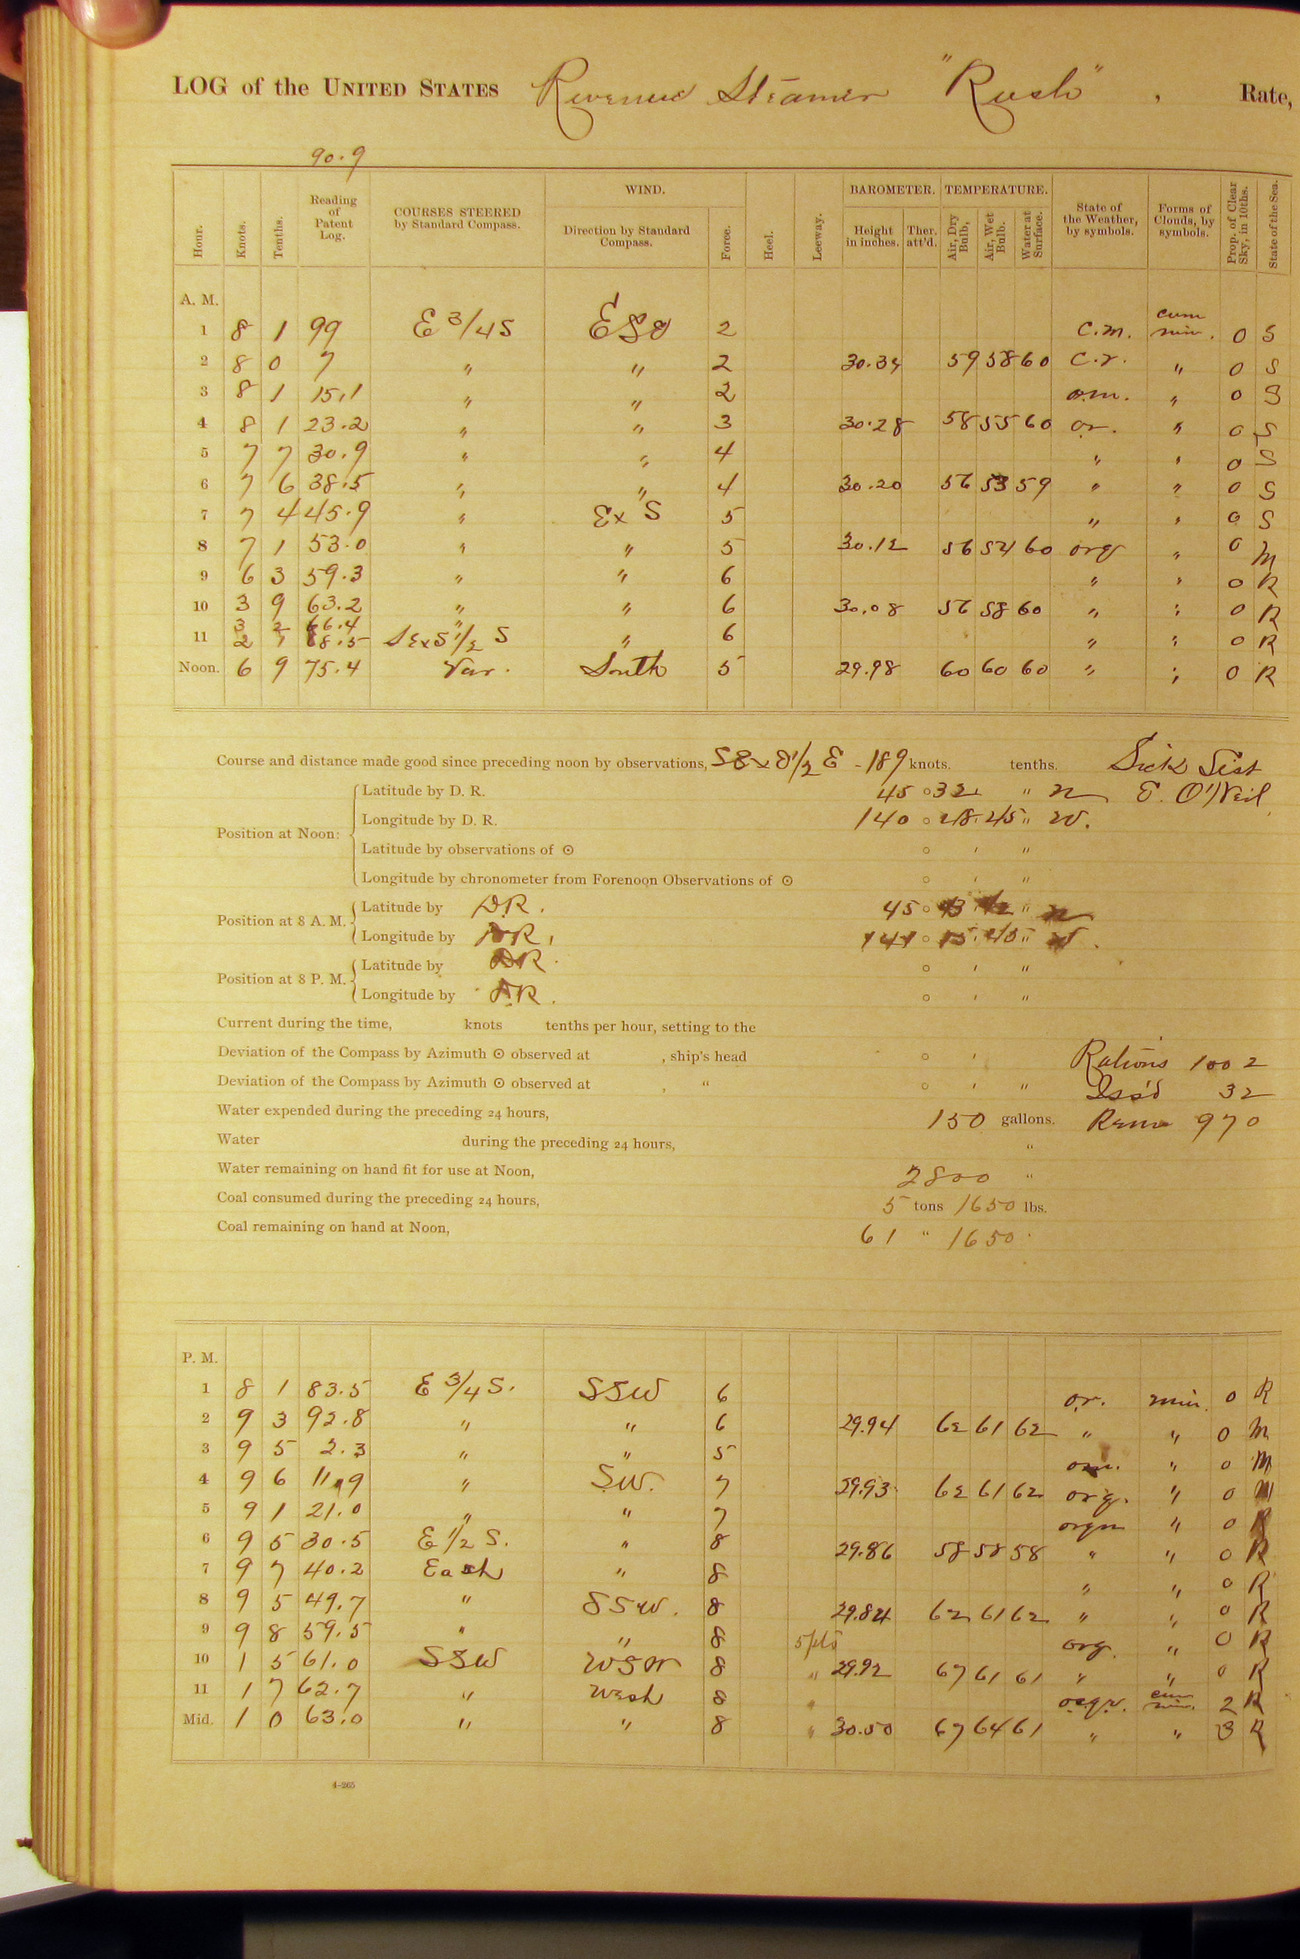 LOG of the UNITED STATES Revenue Steamer "Rush", Rate,
90.9
Hour. Knots. Tenths. Reading of Patent Log. COURSES STEERED by Standard Compass. WIND. Direction by Standard Compass. Force. Heel. Leeway. BAROMETER. Height in inches. Ther. att'd. TEMPERATURE. Air, Dry Bulb, Air, Wet Bulb. Water at Surface. State of the Weather, by symbols. Forms of Clouds, by symbols. Prop. of Clear Sky, in 10ths. State of the Sea.
A. M.
1 8 1 99 E 3/4 S 2 c.m. cum nim. 0 S
2 8 0 7 " " 2 30.34 59 58 60 c.r. " 0 S
3 8 1 15.1 " " 2 o.m. " 0 S
4 8 1 23.2 " " 3 30.28 58 55 60 or. " 0 S
5 7 7 30.9 " " 4 " " 0 S
6 7 6 38.5 " " 4 30.20 56 53 59 " " 0 S
7 7 4 45.9 " ExS 5 " " 0 S
8 7 1 53.0 " " 5 30.12 56 54 60 orq " 0 M
9 6 3 59.3 " " 6 " " 0 R
10 3 9 63.2 " " 6 30.08 56 58 60 " " 0 R
3 2 66.4 "
11 2 1 68.5 SExS 1/2 S " 6 " " 0 R
Noon. 6 9 75.4 Var. South 5 29.98 60 60 60 " " 0 R
Course and distance made good since preceding noon by observations, 1/2 E - 189 knots. tenths. Sick List
Position at Noon: Latitude by D. R. 45 ° 32 ' " N E. O'Neil
Longitude by D. R. 140 ° 28 ' 45 " W.
Latitude by observations of ⊙ ° ' "
Longitude by chronometer from Forenoon Observations of ⊙ ° ' "
Position at 8 A. M. Latitude by D.R. 45 ° " N
Longitude by D.R. 141 ° 15 ' 45 " W.
Position at 8 P. M. Latitude by D.R. ° ' "
Longitude by D.R. ° ' "
Current during the time, knots tenths per hour, setting to the
Deviation of the Compass by Azimuth ⊙ observed at , ship's head ° ' Rations 1002
Deviation of the Compass by Azimuth ⊙ observed at , " ° ' " Iss'd 32
Water expended during the preceding 24 hours, 150 gallons. Rem 970
Water during the preceding 24 hours, "
Water remaining on hand fit for use at Noon, 2800 "
Coal consumed during the preceding 24 hours, 5 tons 1650 lbs.
Coal remaining on hand at Noon, 61 " 1650 "
P. M.
1 8 1 83.5 E 3/4 S. SSW 6 or. nim. 0 R
2 9 3 92.8 " " 6 29.94 62 61 62 " " 0 M
3 9 5 2.3 " " 5 om. " 0 M
4 9 6 11.9 " SW. 7 29.93 62 61 62 orq. " 0 M
5 9 1 21.0 " " 7 orqm " 0 R
6 9 5 30.5 E 1/2 S. " 8 29.86 58 58 58 " " 0 R
7 9 7 40.2 East " 8 " " 0 R
8 9 5 49.7 " SSW. 8 29.84 62 61 62 " " 0 R
9 9 8 59.5 " " 8 5 pts orq. " 0 R
10 1 5 61.0 SSW WSW 8 " 29.92 67 61 61 " " 0 R
11 1 7 62.7 " West 8 " ocqr. cum nim. 2 R
Mid. 1 0 63.0 " " 8 " 30.50 67 64 61 " " 3 R
4-265